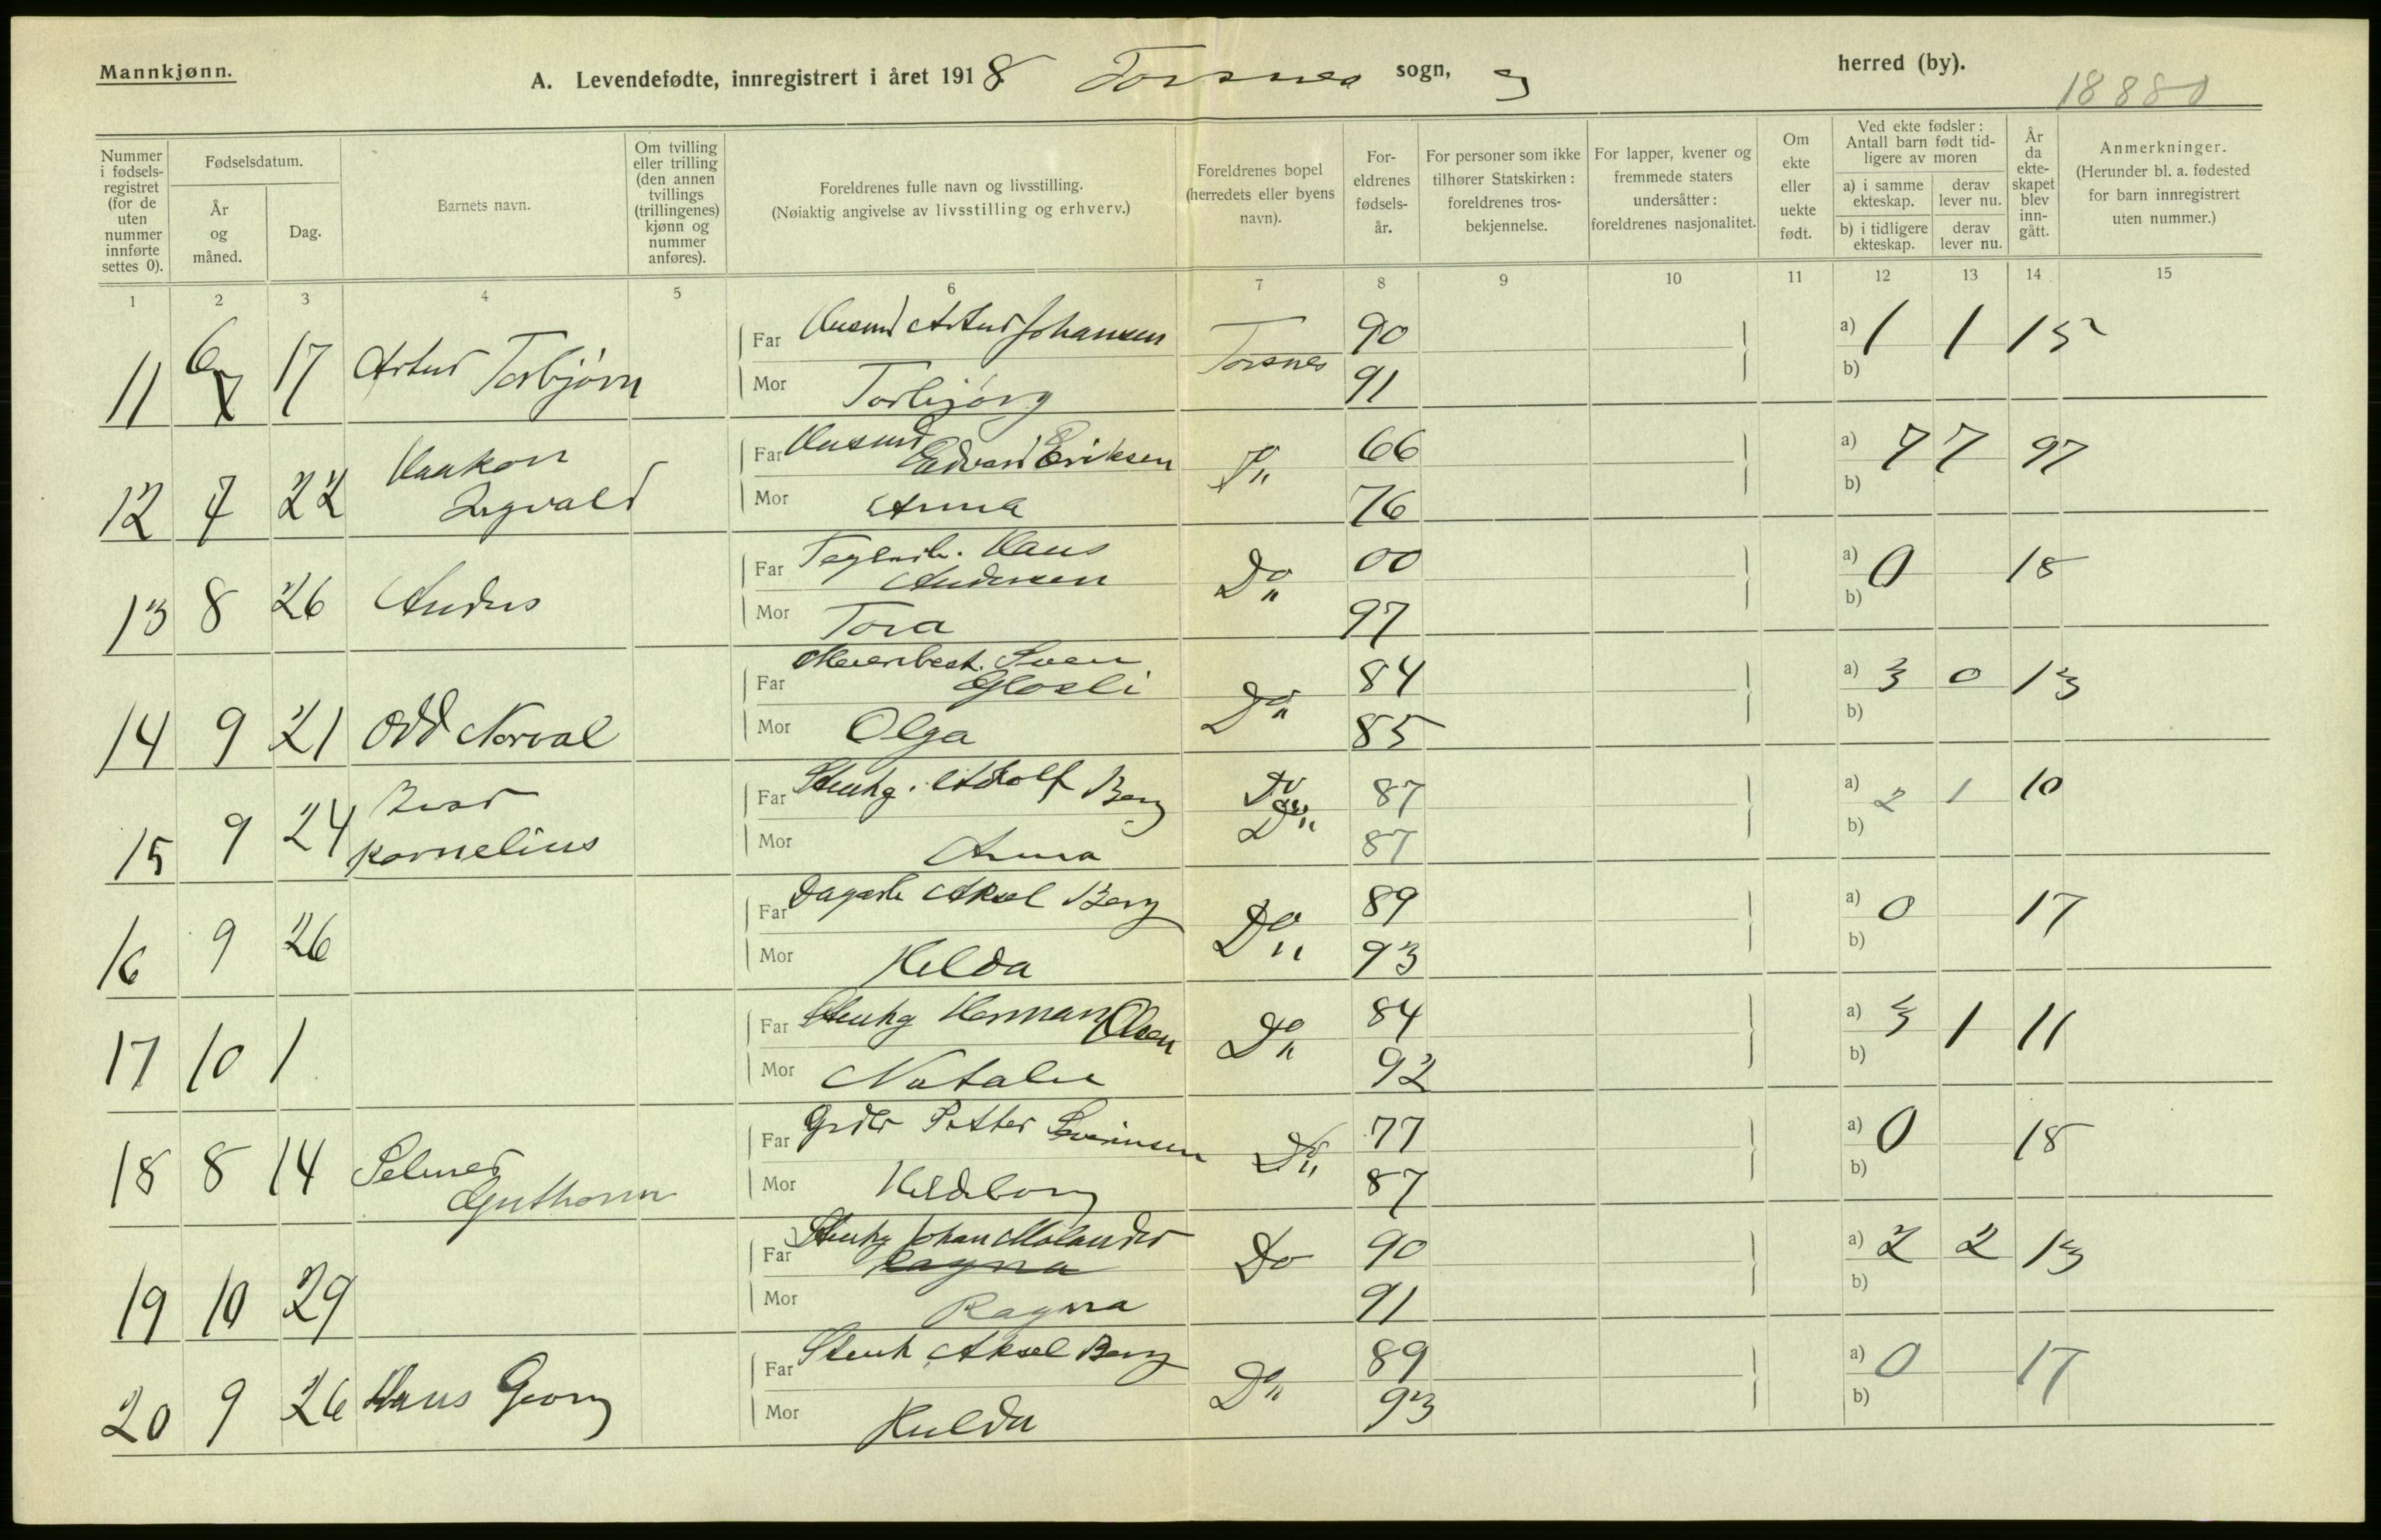 Mannkjønn.
A. Levendefødte, innregistrert i året 1918 Torsnes sogn, herred (by).
18880
Nummer i fødsels-registret (for de uten nummer innførte settes 0).
Fødselsdatum.
År og måned.
Dag.
Barnets navn.
Om tvilling eller trilling (den annen tvillings (trillingenes) kjønn og nummer anføres).
Foreldrenes fulle navn og livsstilling.
(Nøiaktig angivelse av livsstilling og erhverv.)
Foreldrenes bopel (herredets eller byens navn).
For-eldrenes fødsels-år.
For personer som ikke tilhører Statskirken: foreldrenes tros-bekjennelse.
For lapper, kvener og fremmede staters undersåtter: foreldrenes nasjonalitet.
Om ekte eller uekte født.
Ved ekte fødsler: Antall barn født tid-ligere av moren
a) i samme ekteskap.
derav lever nu.
b) i tidligere ekteskap.
derav lever nu.
År da ekte-skapet blev inn-gått.
Anmerkninger.
(Herunder bl. a. fødested for barn innregistrert uten nummer.)
1 2 3 4 5 6 7 8 9 10 11 12 13 14 15
11 6 17 Artur Torbjørn Far Artur Johansen Torsnes 90 a) 1 1 15
Mor Torbjørg 91 b)
12 7 22 Haakon Ingvald Far Edvard Eriksen Do 66 a) 7 7 97
Mor Anna 76 b)
13 8 26 Anders Far Hans Andersen Do 00 a) 0 18
Mor Tora 97 b)
14 9 21 Odd Norval Far Meieribest. Sven Glosli Do 84 a) 3 0 13
Mor Olga 85 b)
15 9 24 Ivar Kornelius Far Stenhg. Adolf Berg Do 87 a) 2 1 10
Mor Anna 87 b)
16 9 26 Far Dagarb Aksel Berg Do 89 a) 0 17
Mor Helda 93 b)
17 10 1 Far Stenhg Herman Olsen Do 84 a) 3 1 11
Mor Natalie 92 b)
18 8 14 Selmer Guthorm Far Petter Severinsen Do 77 a) 0 18
Mor Hildeborg 87 b)
19 10 29 Far Stenhg Johan Molander Ragna Do 90 a) 2 2 13
Mor Ragna 91 b)
20 9 26 Hans Georg Far Stenh Aksel Berg Do 89 a) 0 17
Mor Hulda 93 b)